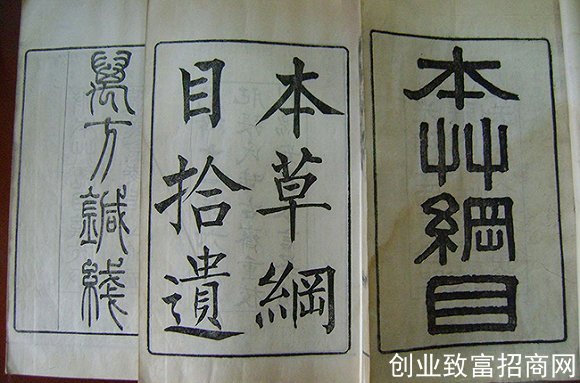 本艸綱目
本草綱
目拾遺
萬方鍼綫
创业致富招商网